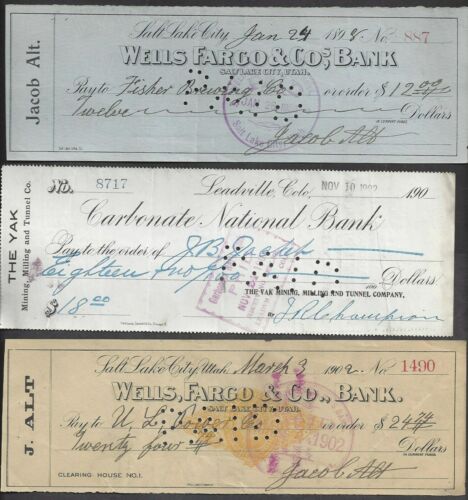 Jacob Alt.
Salt Lake City, Jan 24 189 No. 887
WELLS FARGO & CO'S BANK
SALT LAKE CITY, UTAH.
Pay to Fisher Brewing Co or order $12.00
Twelve Dollars
IN CURRENT FUNDS
Jacob Alt
THE YAK
Mining, Milling and Tunnel Co.
No. 8717 Leadville, Colo. NOV 10 1902 190
Carbonate National Bank
Pay to the order of J.B.
Eighteen no/100 Dollars
PAID
$18.00 THE YAK MINING, MILLING AND TUNNEL COMPANY,
BY
J. ALT
Salt Lake City, Utah, March 3 1902 No. 1490
WELLS, FARGO & CO., BANK.
SALT LAKE CITY, UTAH.
Pay to U. L. Power Co or order $24
Twenty four Dollars
IN CURRENT FUNDS
1902
CLEARING HOUSE NO.1. Jacob Alt